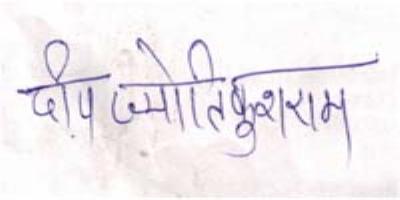 दीप ज्योति कुशराम